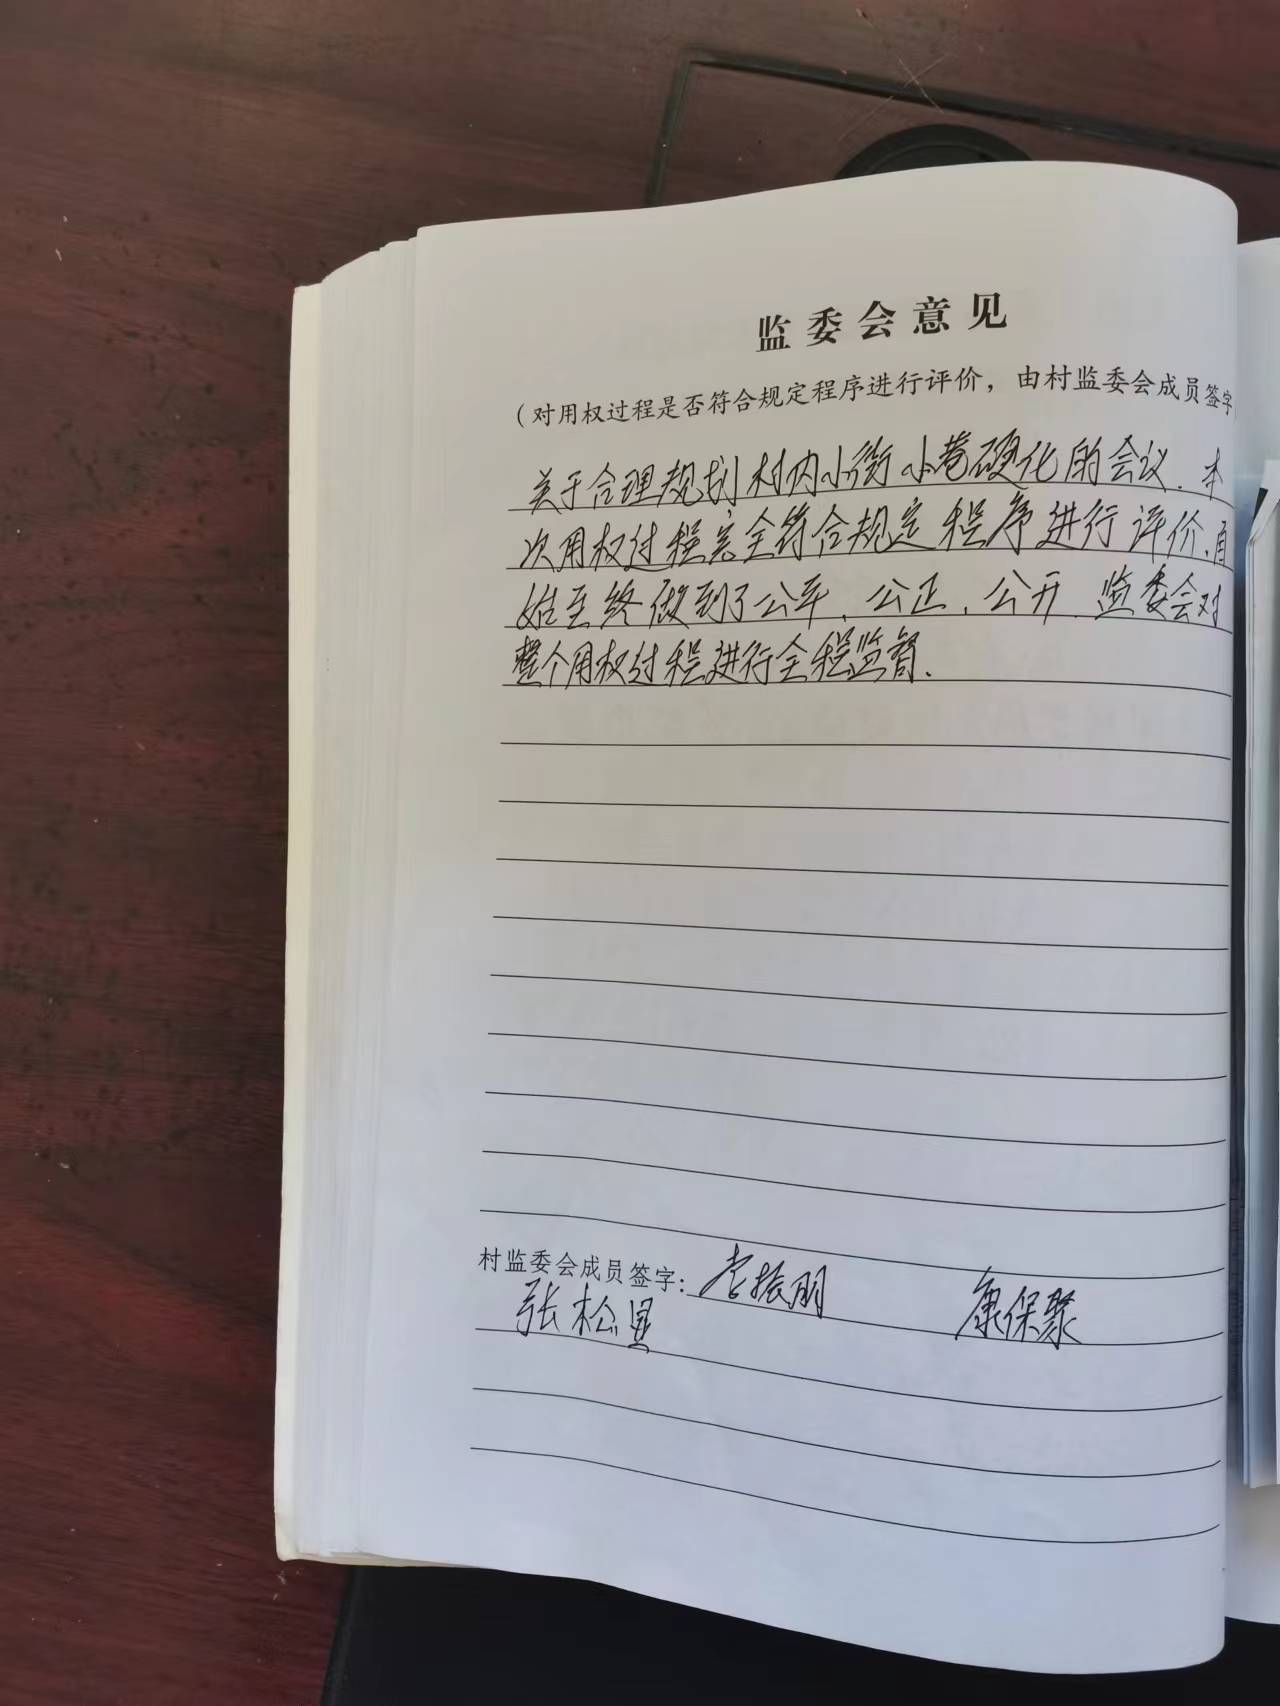 监委会意见
（对用权过程是否符合规定程序进行评价，由村监委会成员签字
关于合理规划村内小街小巷硬化的会议．本
次用权过程完全符合规定程序进行评价，自
始至终做到了公平、公正、公开．监委会对
整个用权过程进行全程监督．
村监委会成员签字：李振朋 康保聚
张松